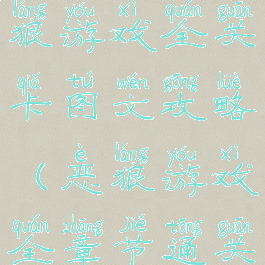 láng yóu xì quán guān
狼游戏全关
qiǎ tú wén gōng lüè
卡图文攻略
è láng yóu xì
（恶狼游戏
quán zhāng jié tōng guān
全章节通关